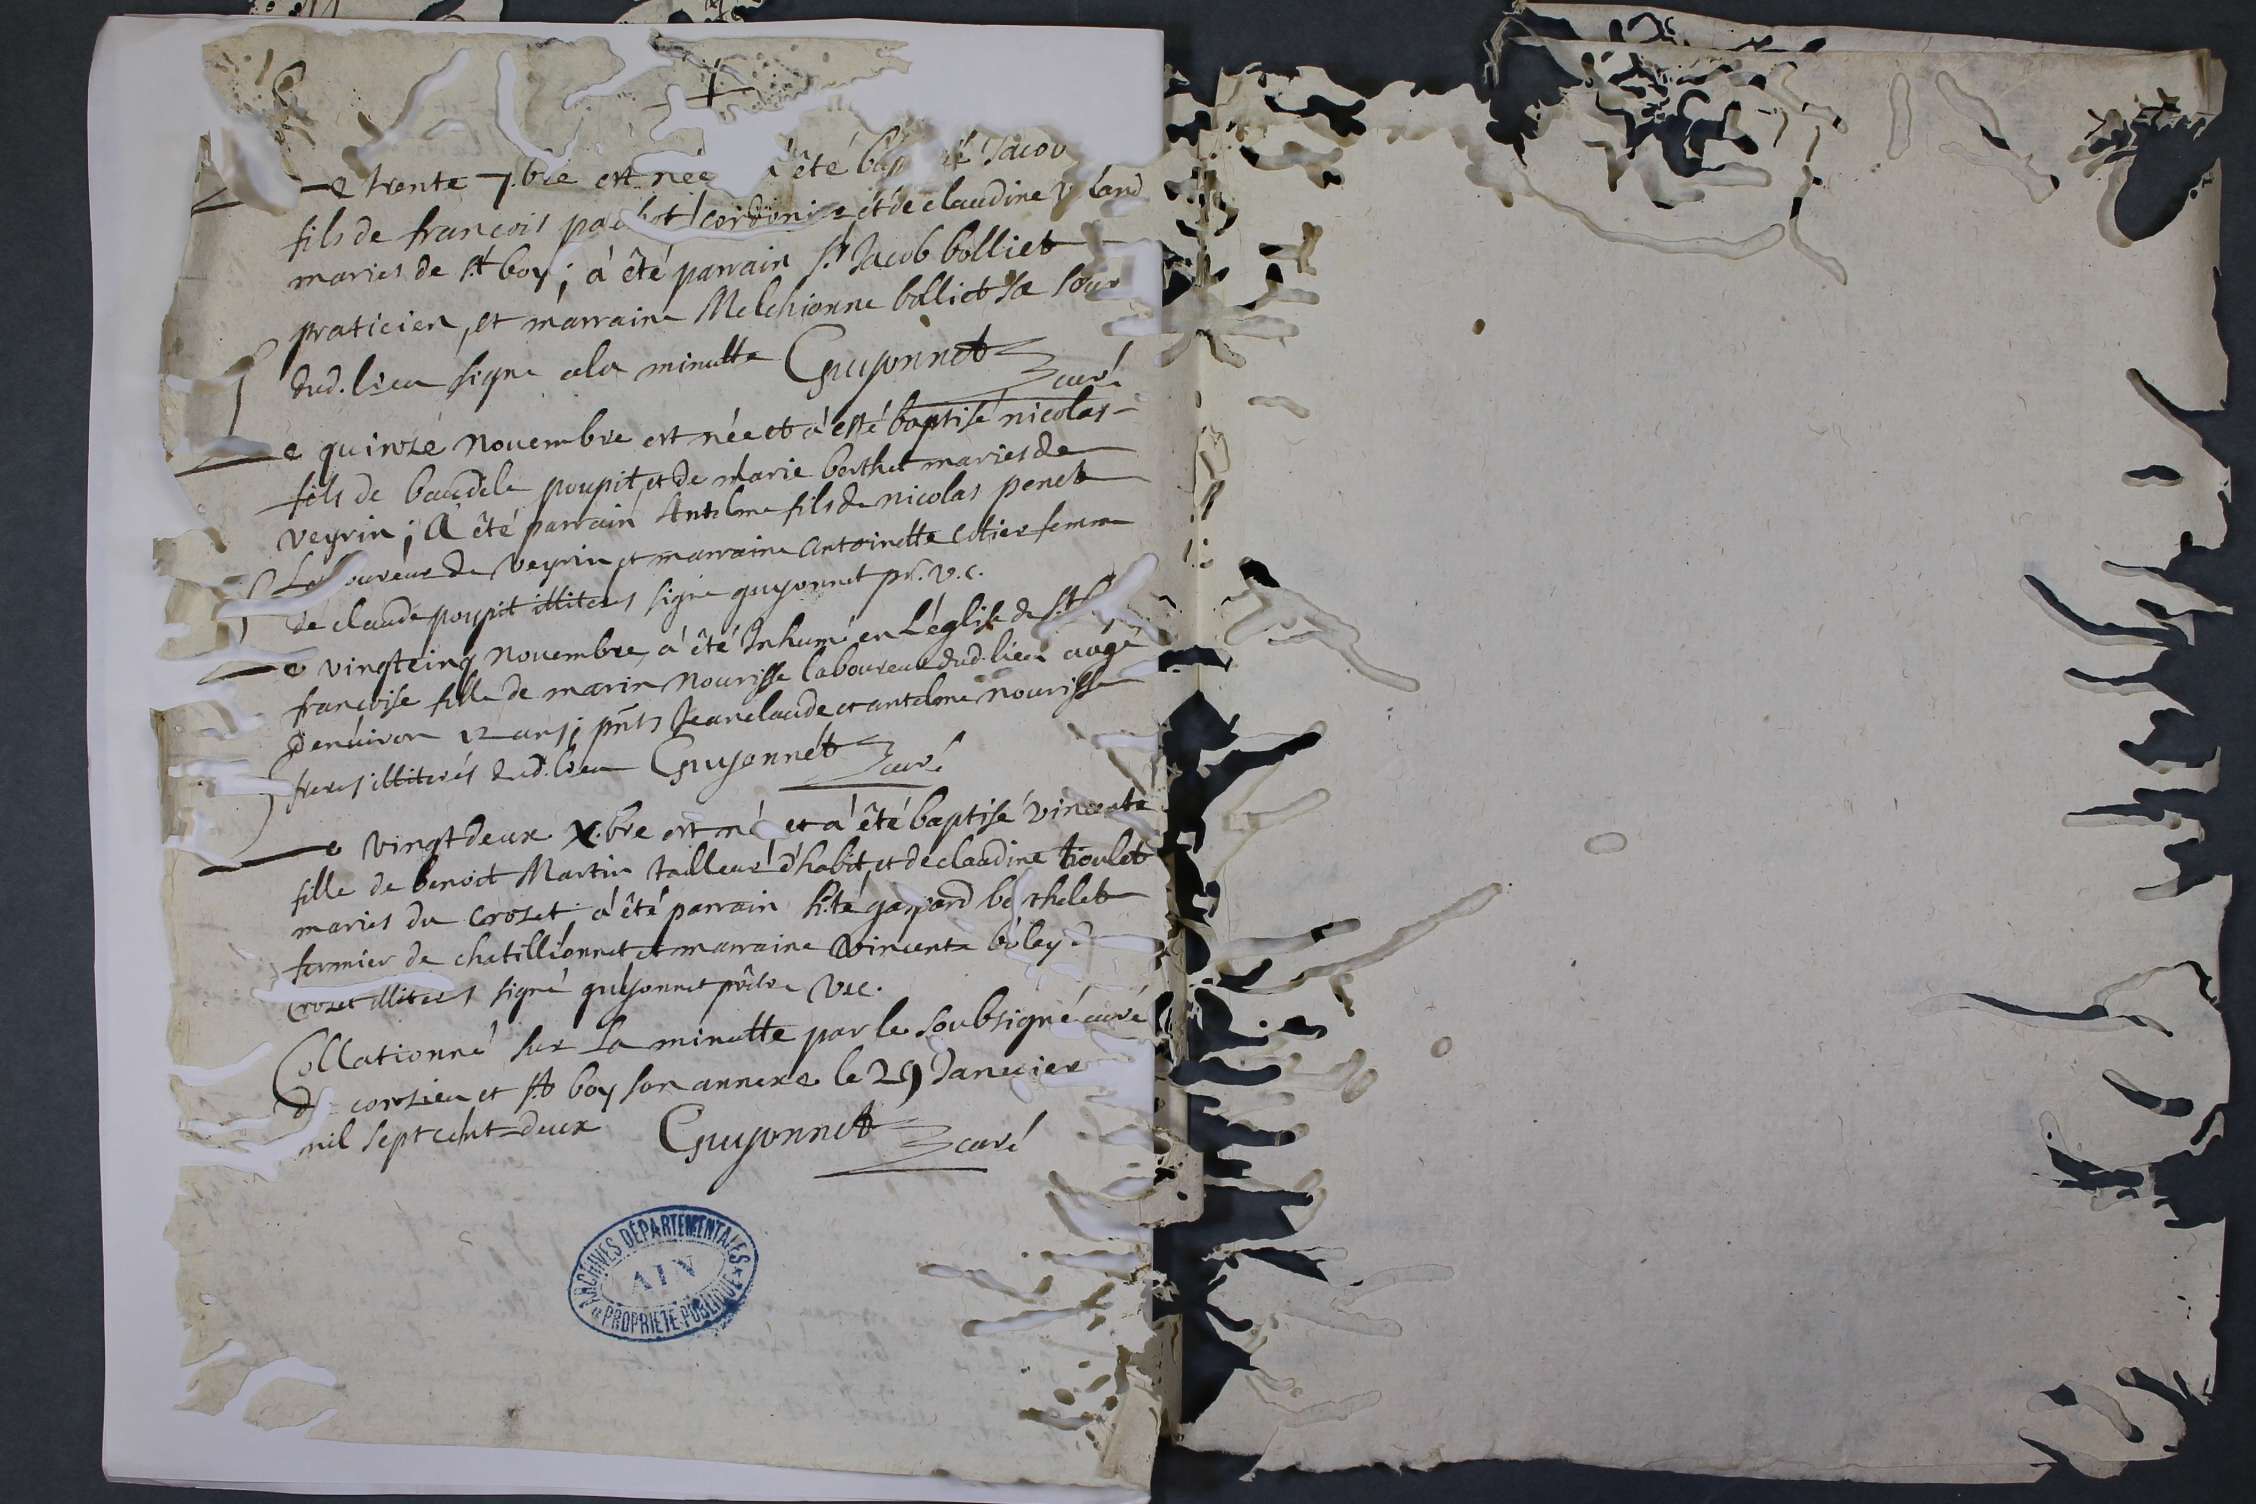 Le trente 7.bre est née à été Jacob
fils de francois et de claudine
mariés de st boy; à été parrain sr Jacob bolliet
praticien, et marraine Melchionne bolliet sa sœur
dud. lieu signe a la minutte Guyonnet curé
Le quinzé Nouembre est née et à esté baptisé nicolas
fils de baudéle poupit, et de marie berthet mariés de
veyrin; A été parrain Antelme fils de nicolas penet
Laboureur de veyrin et marraine antoinette cotier femme
de claude poupit illiterés signé guyonnet pr. v.c.
Le vingtcinq Nouembre, à été Inhumé en L'église de st
françoise fille de marin Nourisse laboureur dud. lieu aagé
d'enuiron 12 ans; pnts Jeanclaude et antelme nourisse
freres illiterés dud. lieu Guyonnét curé
Le vingtdeux X.bre est né et à été baptisé vincente
fille de benoit Martin tailleur d'habit, et de claudine tioulet
mariés du crozet; à été parrain h.te gaspard berthelet
fermier de chatillionnet et marraine vincente boley de
crozet illiterés signé guyonnet prêtre v.c.
Collationné sur La minutte par le soubsigné curé
de conzieu et st boy son annexe le 29 Januier
mil septcent-deux Guyonnet curé
ARCHIVES DÉPARTEMENTALES
AIN
PROPRIÉTÉ PUBLIQUE